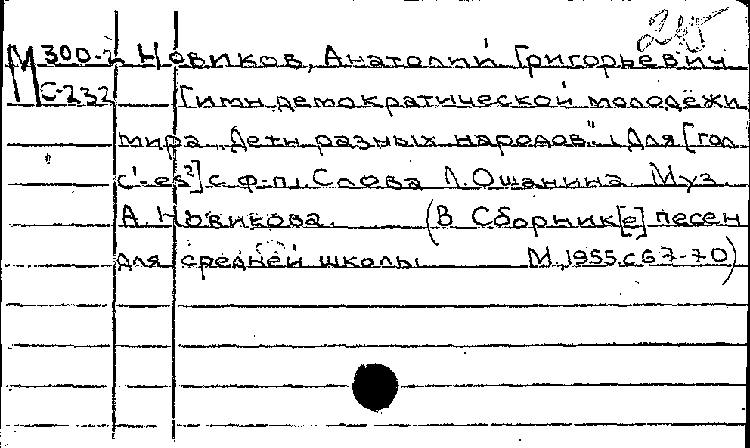 215
М 300-2 Новиков, Анатолий Григорьевич
С-232 Гимн демократической молодёжи
мира „Дети разных народов". Для [гол.
c¹-es²] с ф-п. Слова Л. Ошанина Муз.
А. Новикова. (В Сборник[е] песен
для средней школы М., 1955. с 67-70)